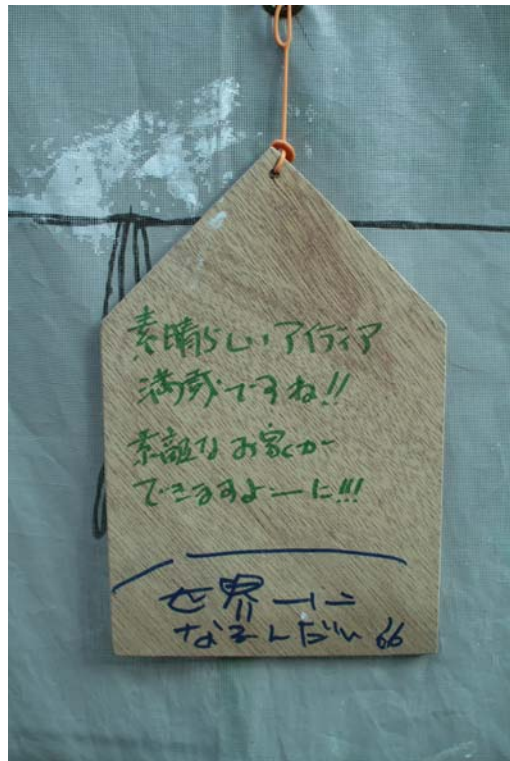 素晴らしいアイディア
満載ですね!!
素敵なお家が
できますよーに!!!
世界一に
なるんだい